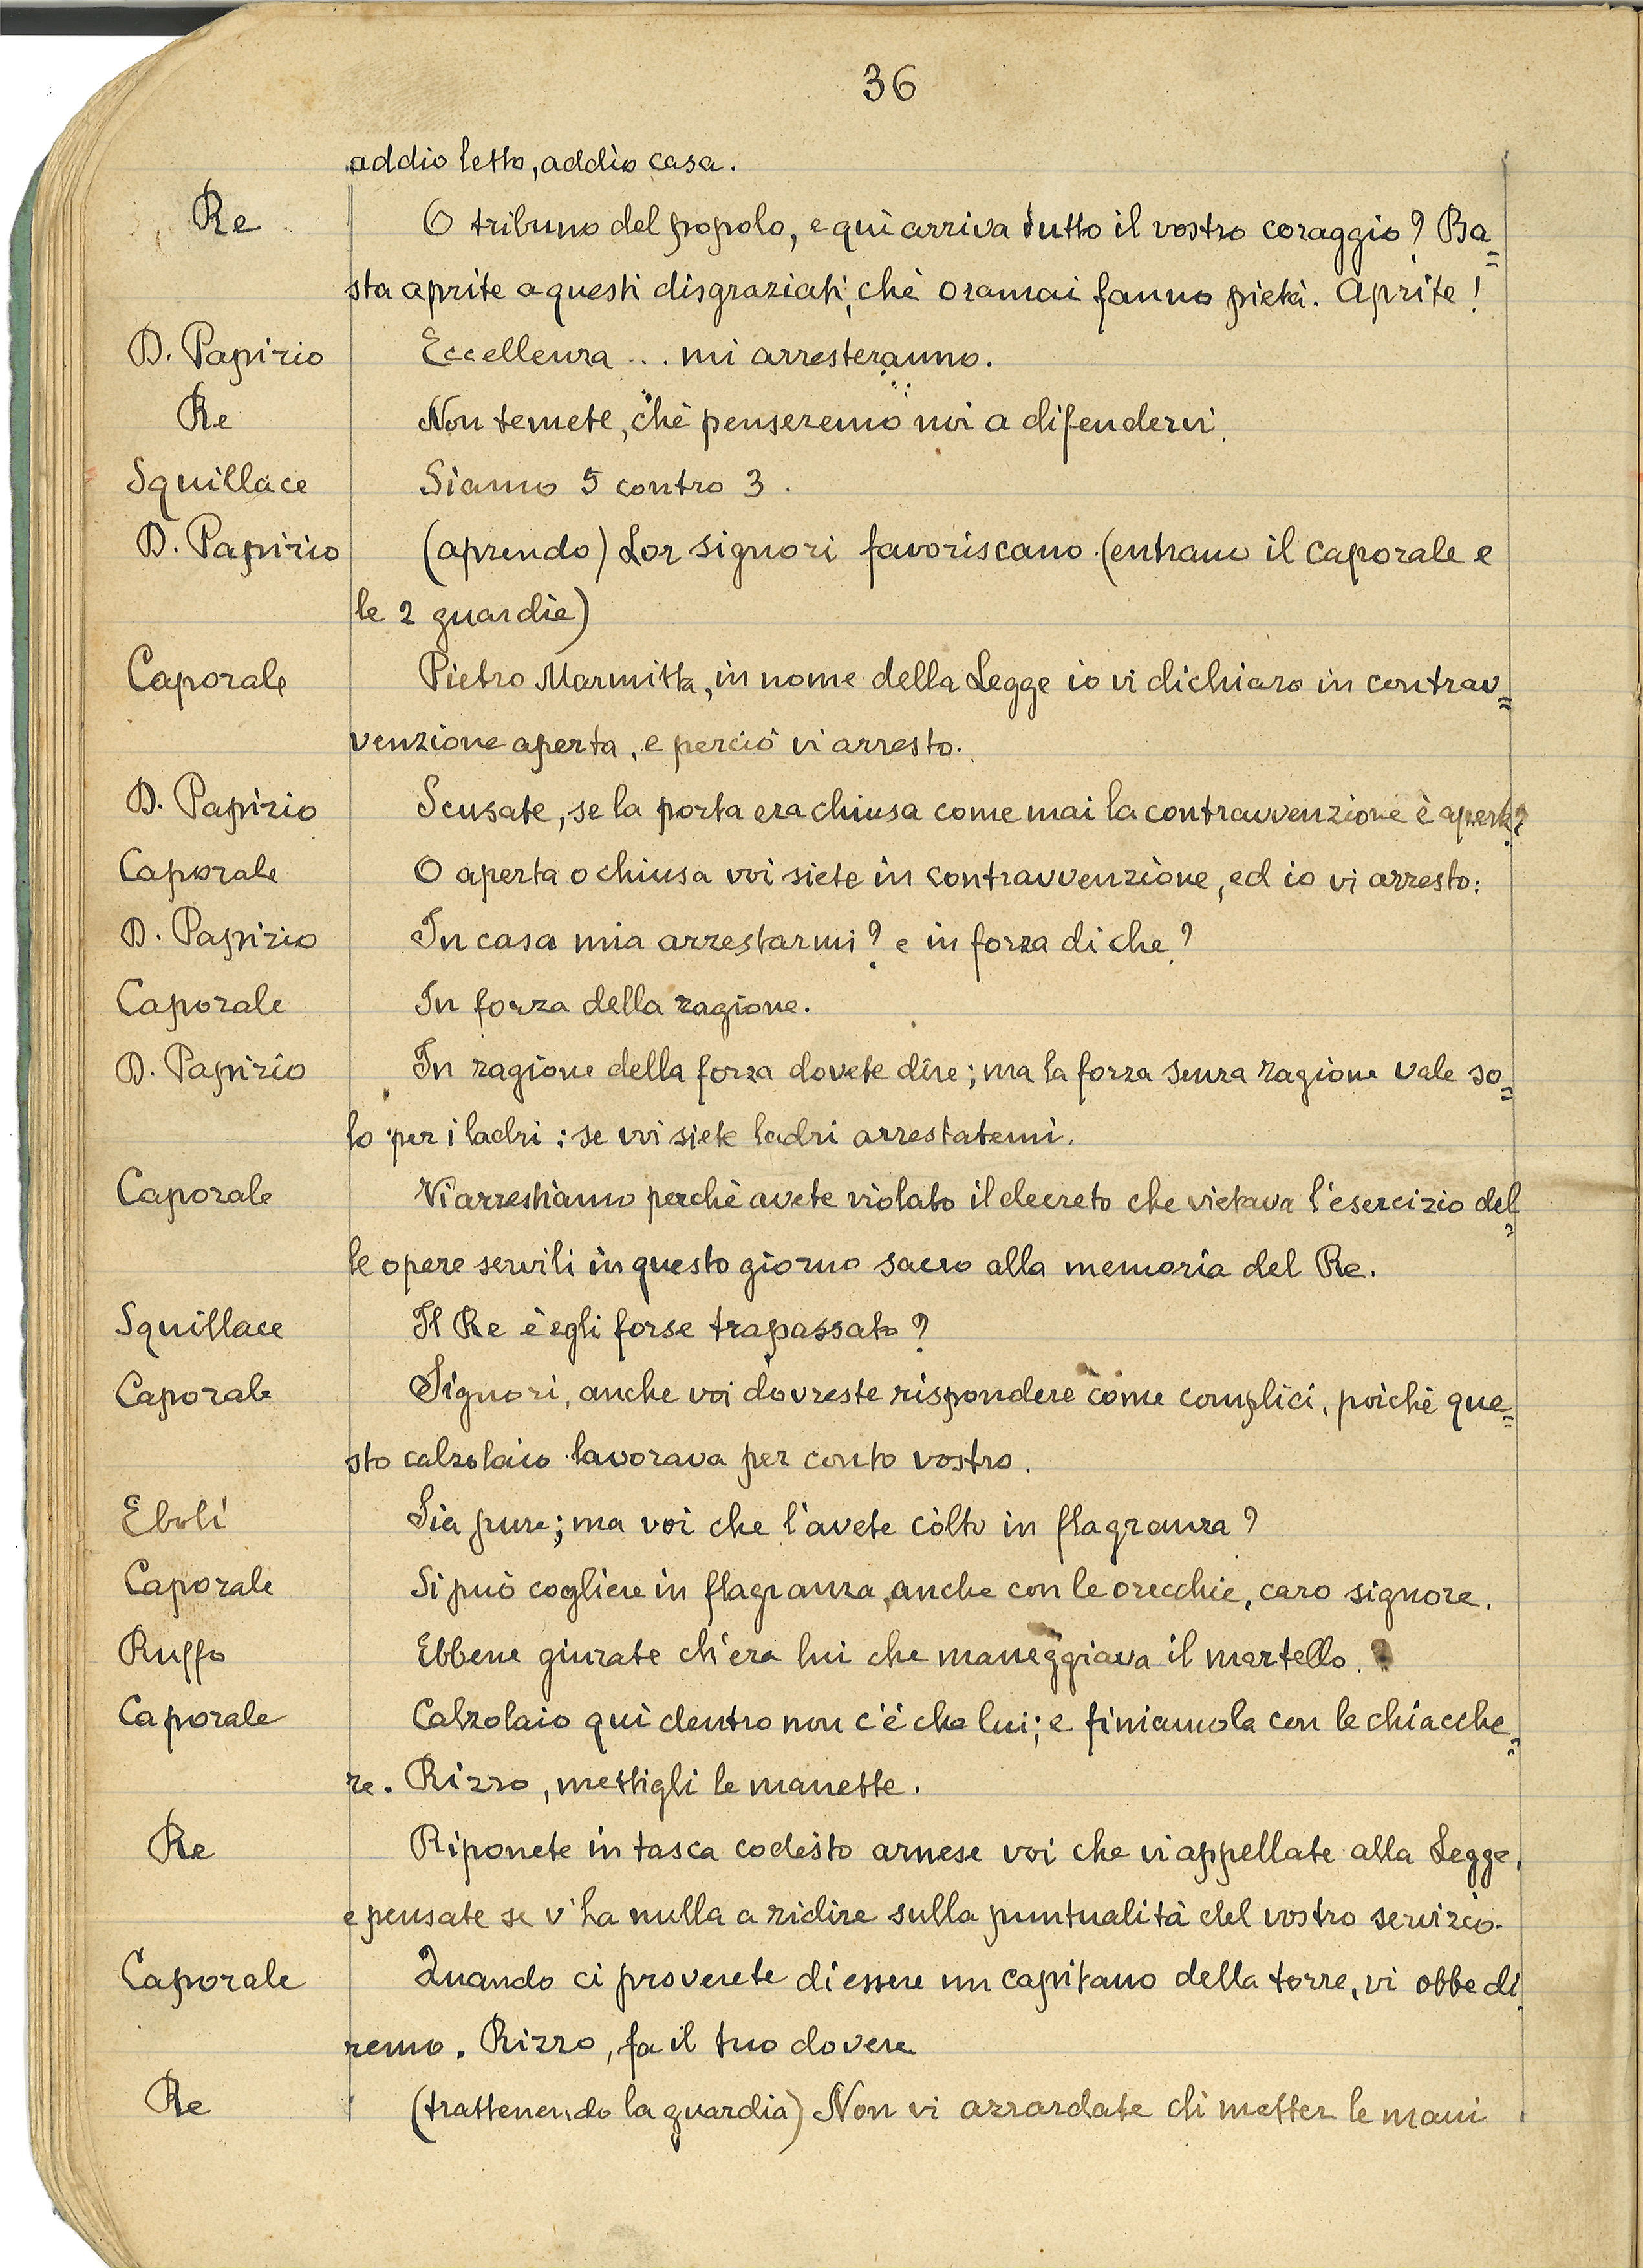 36
addio letto, addio casa.
Re O tribuno del popolo, e quì arriva tutto il vostro coraggio? Ba=
sta aprite a questi disgraziati, chè oramai fanno pietà. Aprite!
D. Papirio Eccellenza ... mi arresteranno.
Re Non temete, chè penseremo noi a difendervi.
Squillace Siamo 5 contro 3.
D. Papirio (aprendo) Lor signori favoriscano. (entrano il caporale e
le 2 guardie)
Caporale Pietro Marmitta, in nome della Legge io vi dichiaro in contrav=
venzione aperta, e perciò vi arresto.
D. Papirio Scusate, se la porta era chiusa come mai la contravvenzione è aperta?
Caporale O aperta o chiusa voi siete in contravvenzione, ed io vi arresto:
D. Papirio In casa mia arrestarmi? e in forza di che?
Caporale In forza della ragione.
D. Papirio In ragione della forza dovete dire; ma la forza senza ragione vale so=
lo per i ladri: se voi siete ladri arrestatemi.
Caporale Vi arrestiamo perchè avete violato il decreto che vietava l'esercizio del=
le opere servili in questo giorno sacro alla memoria del Re.
Squillace Il Re è egli forse trapassato?
Caporale Signori, anche voi dovreste rispondere come complici, poichè que=
sto calzolaio lavorava per conto vostro.
Eboli Sia pure; ma voi che l'avete còlto in flagranza?
Caporale Si può cogliere in flagranza anche con le orecchie, caro signore.
Ruffo Ebbene giurate ch'era lui che maneggiava il martello.
Caporale Calzolaio quì dentro non c'è che lui; e finiamola con le chiacche=
re. Rizzo, mettigli le manette.
Re Riponete in tasca codesto arnese voi che vi appellate alla Legge,
e pensate se v'ha nulla a ridire sulla puntualità del vostro servizio.
Caporale Quando ci proverete di essere un capitano della torre, vi obbedi=
remo. Rizzo, fa il tuo dovere
Re (trattenendo la guardia) Non vi azzardate di metter le mani